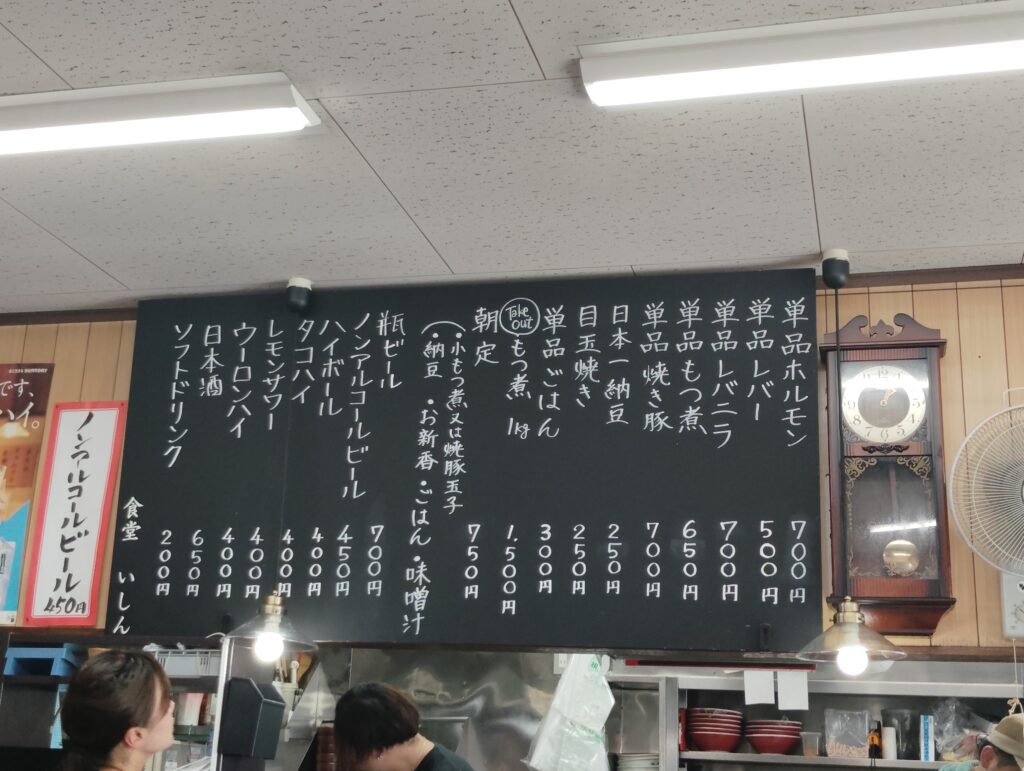 単品ホルモン 700円
単品レバー 500円
単品レバニラ 700円
単品もつ煮 650円
単品焼き豚 700円
日本一納豆 250円
目玉焼き 250円
単品ごはん 300円
Take Out もつ煮 1kg 1.500円
朝定 750円
(・小もつ煮又は焼豚玉子
・納豆 ・お新香 ・ごはん ・味噌汁
瓶ビール 700円
ノンアルコールビール 450円
ハイボール 400円
タコハイ 400円
レモンサワー 400円
ウーロンハイ 400円
日本酒 650円
ソフトドリンク 200円
食堂 いしん
ノンアルコールビール 450円
です、
ハイ。